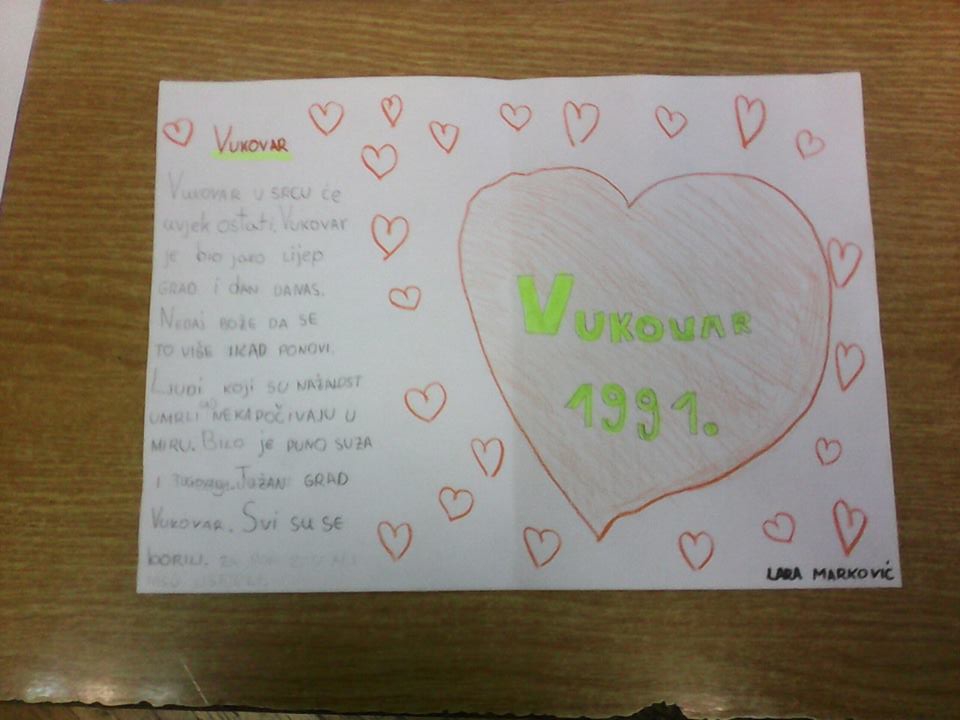 VUKOVAR
VUKOVAR U SRCU ĆE
uvjek ostati. VUKOVAR
je bio jako LIJEP
GRAD I DAN DANAS.
NEDAJ BOŽE DA SE
TO VIŠE IKAD PONOVI.
LJUDI KOJI SU NAŽALOST
UMRLI NEKAPOČIVAJU U
MIRU. BILO je PUNO SUZA
I TUŽAN GRAD
VUKOVAR. SVI SU SE
BORILI.
VUKOVAR
1991.
LARA MARKOVIĆ